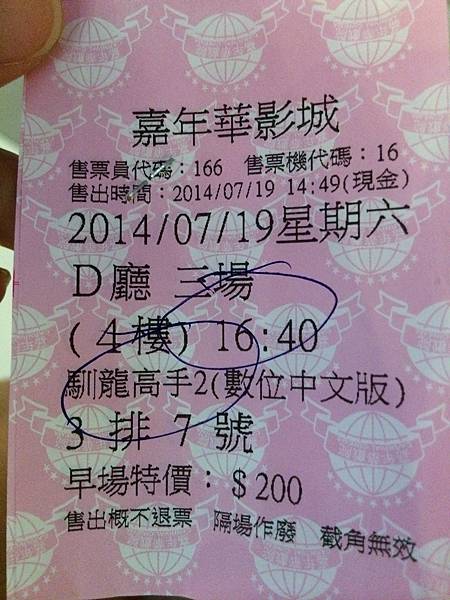 嘉年華影城
售票員代碼：166 售票機代碼：16
售出時間：2014/07/19 14:49(現金)
2014/07/19星期六
D廳 三場
(4樓) 16:40
馴龍高手2(數位中文版)
3 排 7 號
早場特價：$200
售出概不退票 隔場作廢 截角無效